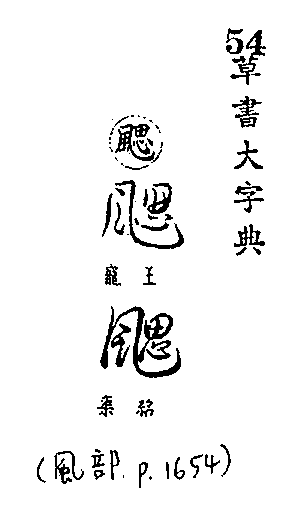 54
草書大字典
颸
颸
王寵
颸
(風部. p.1654)